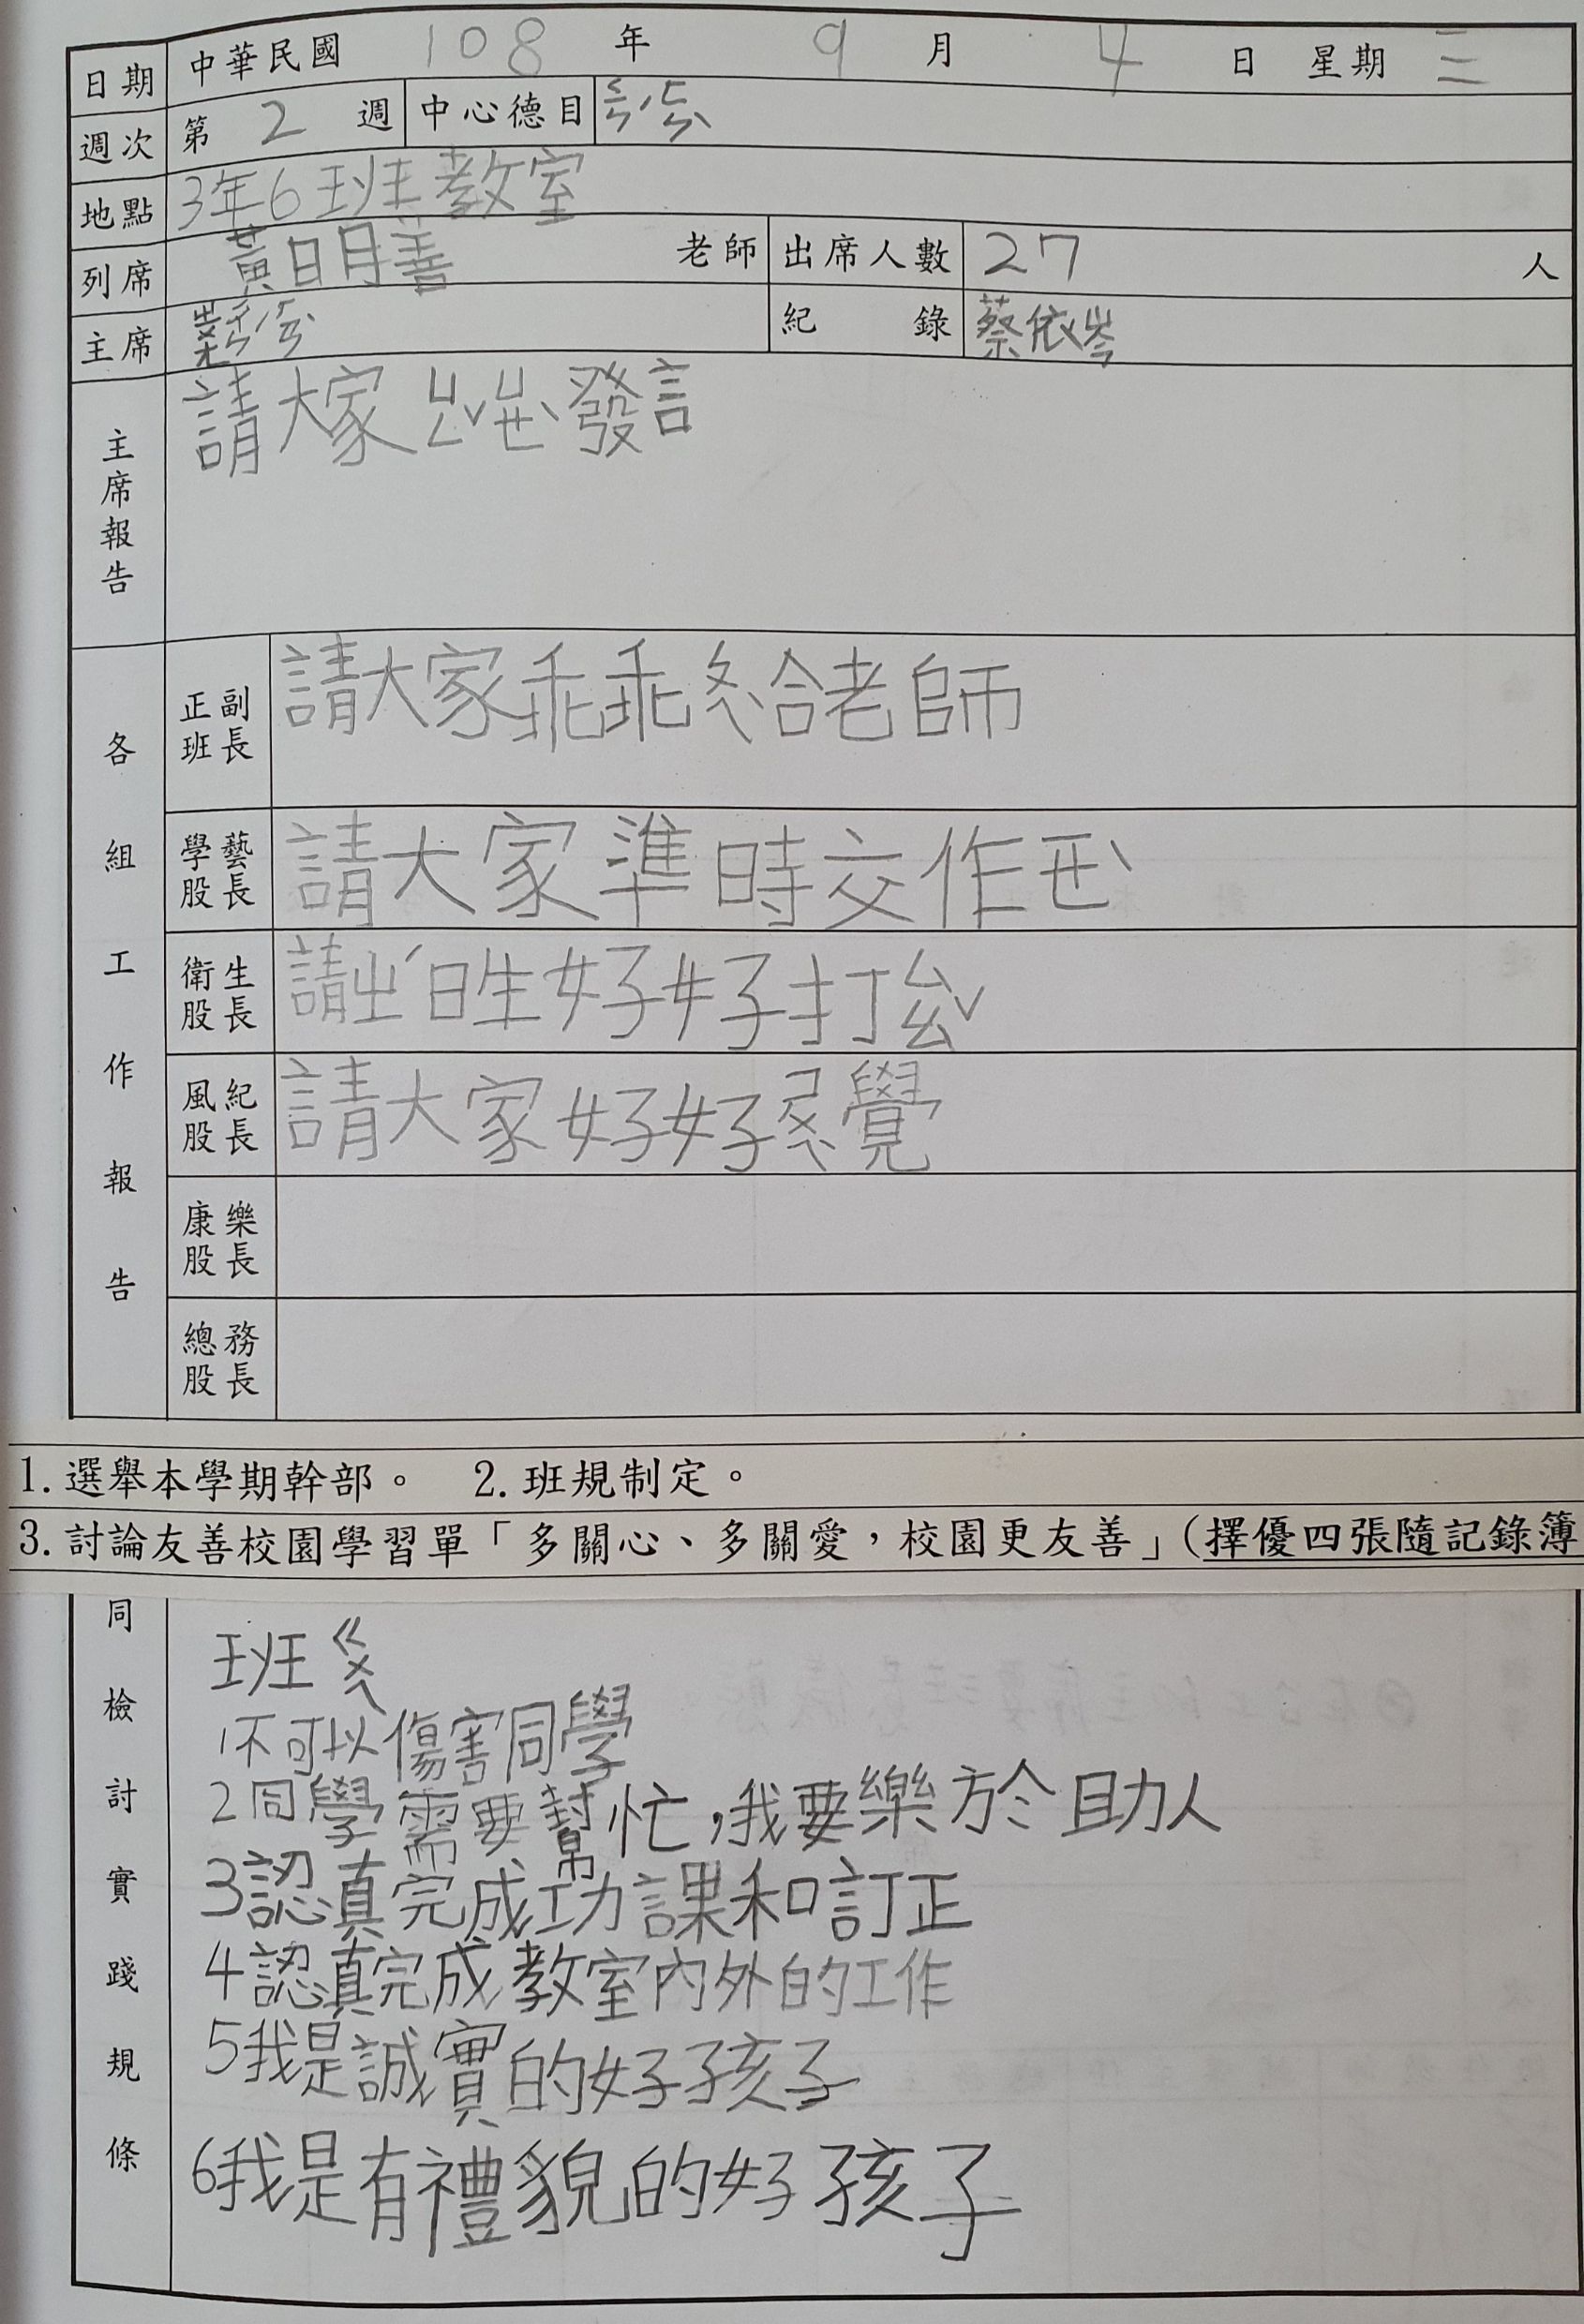 日期 中華民國 108 年 9 月 4 日 星期 三
週次 第 2 週 中心德目
地點 3年6班教室
列席 黃明善 老師 出席人數 27 人
主席 紀錄 蔡依岑
主席報告 請大家ㄐㄩˇㄐㄩˋ發言
各組工作報告
正副班長 請大家乖乖ㄊㄧㄥ給老師
學藝股長 請大家準時交作ㄧㄝˋ
衛生股長 請 生好好打ㄙㄠˇ
風紀股長 請大家好好ㄕㄨㄟˋ覺
康樂股長
總務股長
1.選舉本學期幹部。 2.班規制定。
3.討論友善校園學習單「多關心、多關愛，校園更友善」(擇優四張隨記錄簿
同檢討實踐規條
班ㄍㄨㄟ
1不可以傷害同學
2同學需要幫忙，我要樂於助人
3認真完成功課和訂正
4認真完成教室內外的工作
5我是誠實的好孩子
6我是有禮貌的好孩子